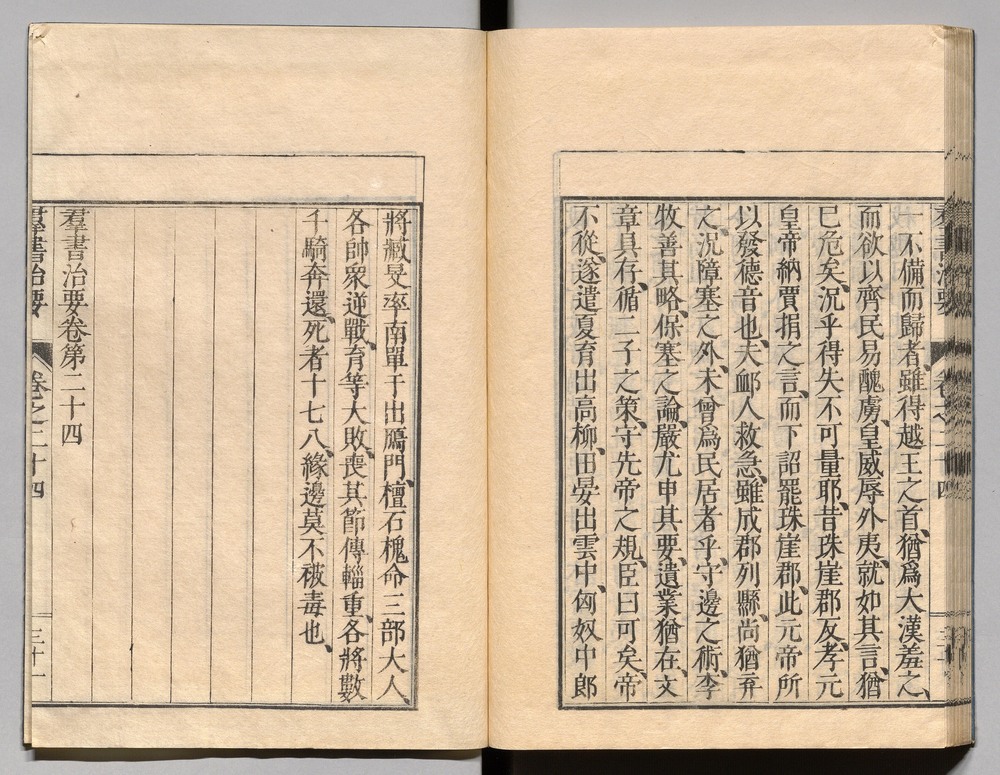 一不備而歸者、雖得越王之首、猶爲大漢羞之、
而欲以齊民易醜虜、皇威辱外夷、就如其言、猶
已危矣、況乎得失不可量耶、昔珠崖郡反、孝元
皇帝納賈捐之言、而下詔罷珠崖郡、此元帝所
以發德音也、夫䘏人救急、雖成郡列縣、尚猶弃
之、況障塞之外、未曾爲民居者乎、守邊之術、李
牧善其略、保塞之論、嚴尤申其要、遺業猶在、文
章具存、循二子之策、守先帝之規、臣曰可矣、帝
不從、遂遣夏育出高柳、田晏出雲中、匈奴中郎
將臧旻率南單于出鴈門、檀石槐命三部大人、
各帥衆逆戰、育等大敗、喪其節傳輜重、各將數
千騎奔還、死者十七八、緣邊莫不被毒也、
羣書治要卷第二十四
羣書治要 卷之二十四 三十一